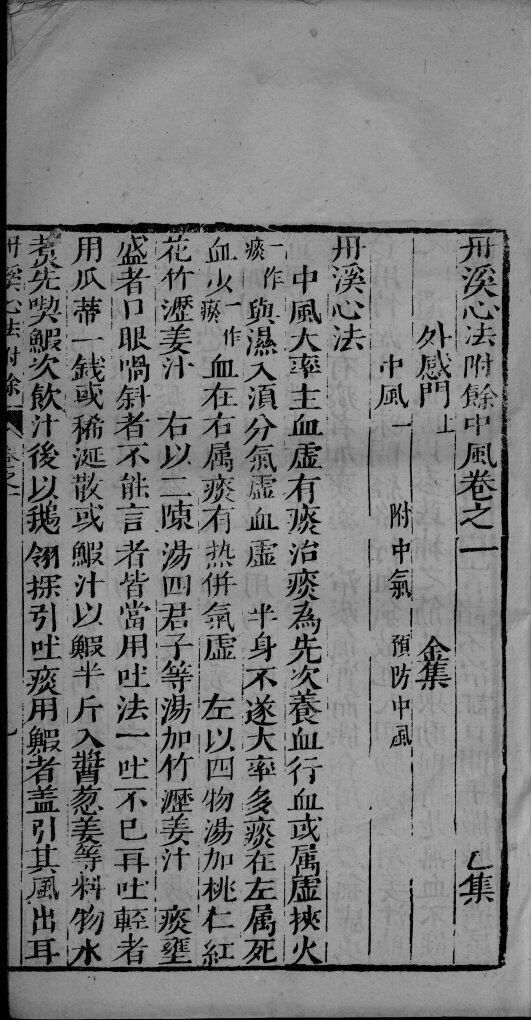 丹溪心法附餘中風卷之一 乙集
外感門上 金集
中風一 附中氣 預防中風
丹溪心法
中風大率主血虛有痰治痰為先次養血行血或属虛挾火
一作痰與濕入湏分氣虛血虛 半身不遂大率多痰在左属死
血少一作瘀血在右属痰有熱併氣虛 左以四物湯加桃仁紅
花竹瀝姜汁 右以二陳湯四君子等湯加竹瀝姜汁 痰壅
盛者口眼喎斜者不能言者皆當用吐法一吐不已再吐輕者
用瓜蒂一錢或稀涎散或鰕汁以鰕半斤入醬葱姜等料物水
煑先喫鰕次飲汁後以鵝翎探引吐痰用鰕者盖引其風出耳
丹溪心法附餘 卷之一